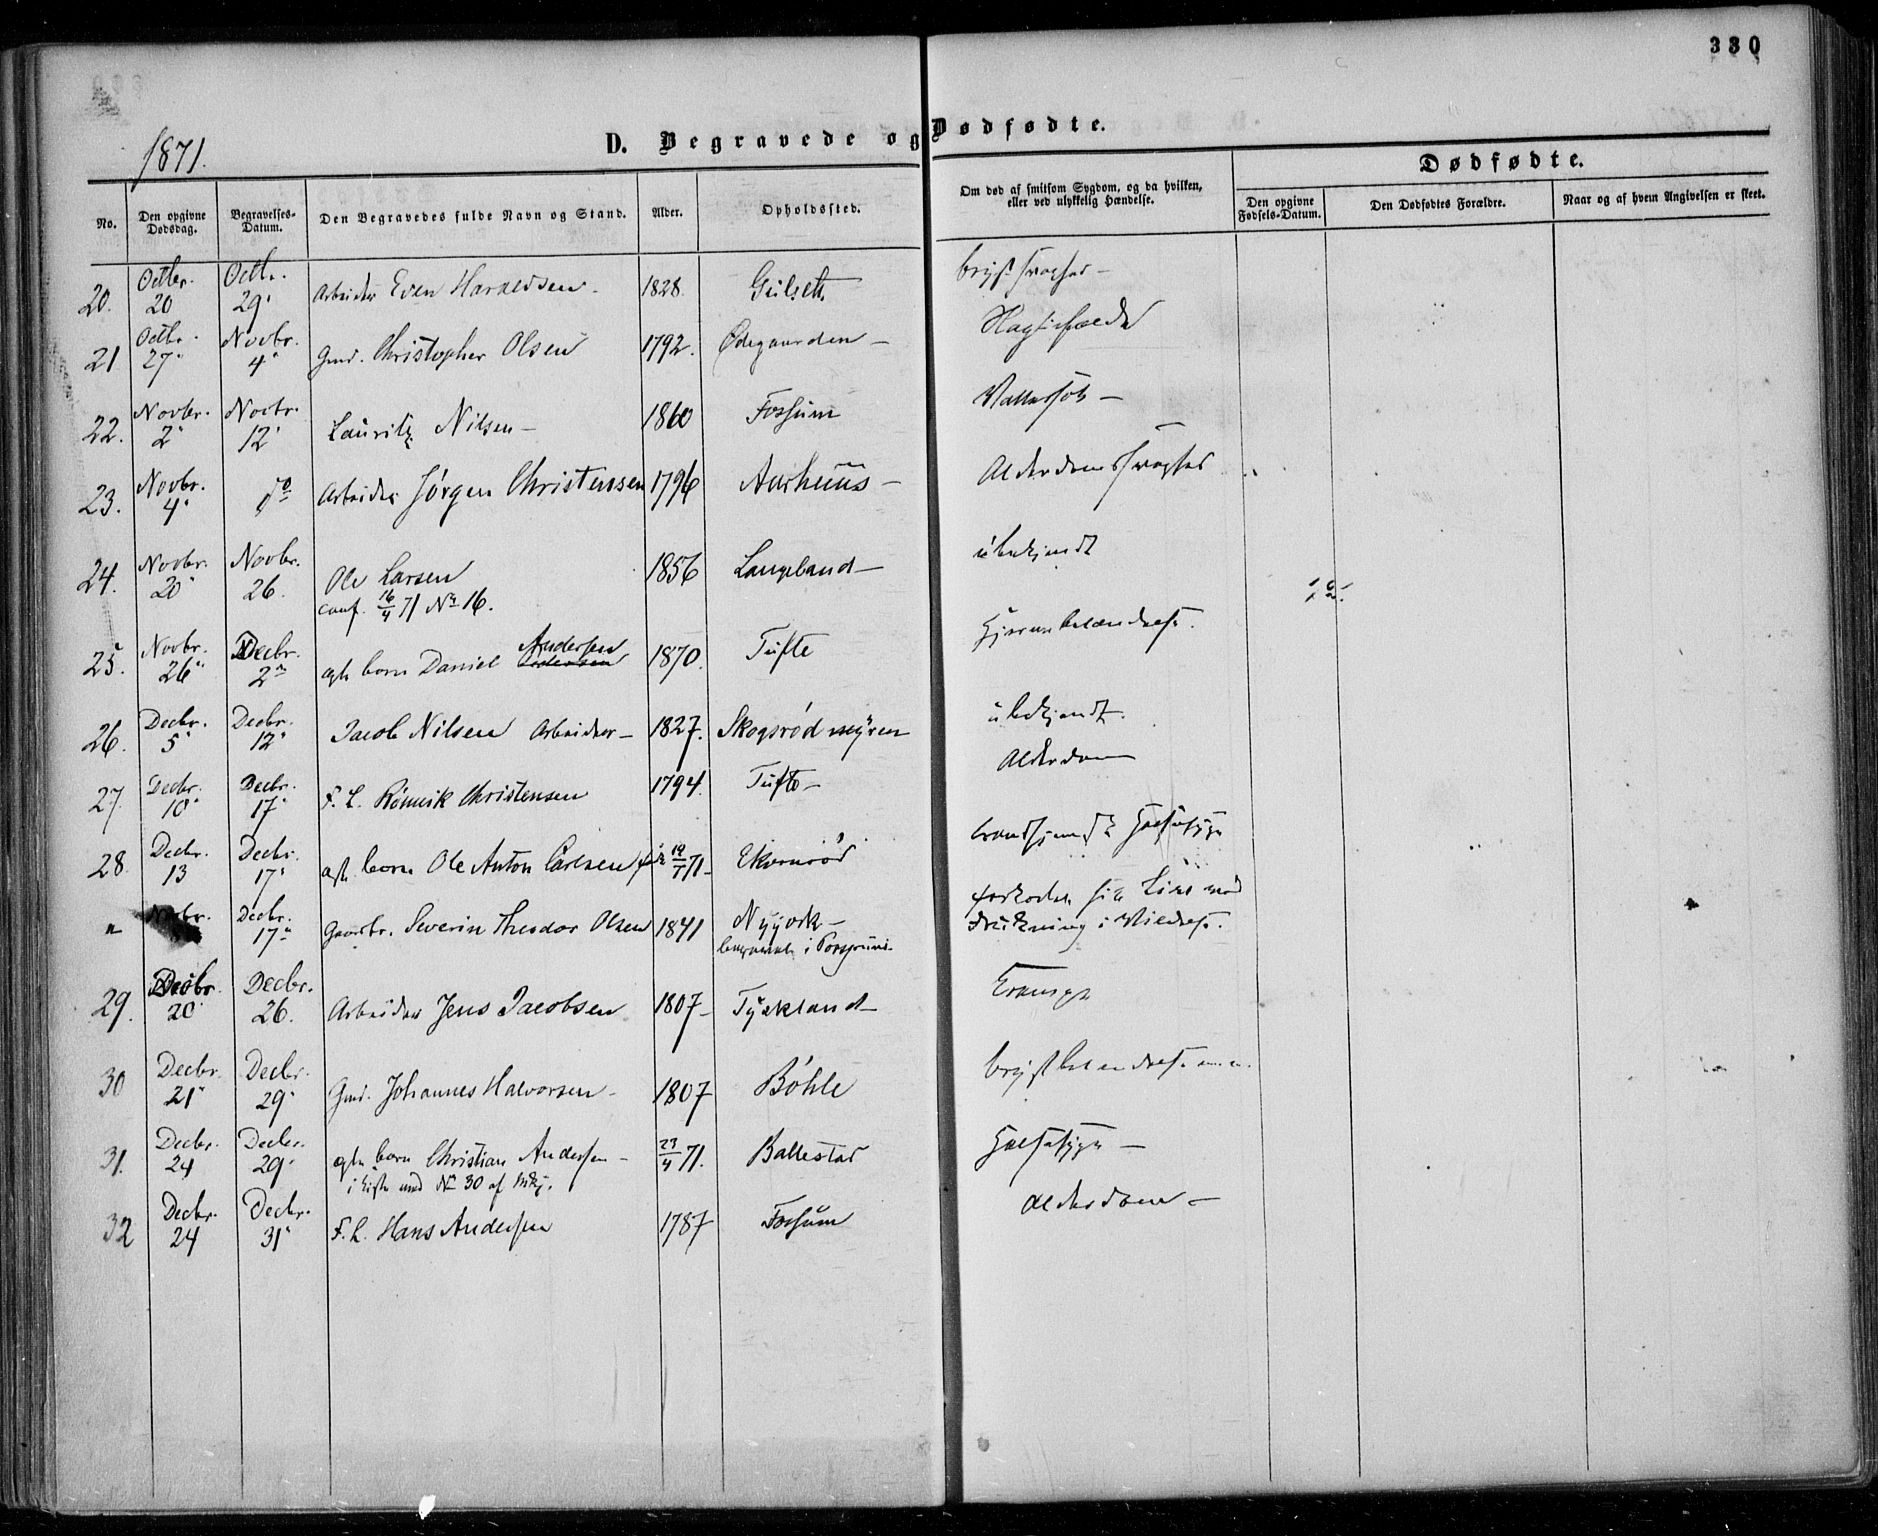 330
1871.
D. Begravede og Dødfødte.
Dødfødte.
No.
Den opgivne Dødsdag.
Begravelses-Datum.
Den Begravedes fulde Navn og Stand.
Alder.
Opholdssted.
Om død af smitsom Sygdom, og da hvilken, eller ved ulykkelig Hændelse.
Den opgivne Fødsels-Datum.
Den Dødfødtes Forældre.
Naar og af hvem Angivelsen er skeet.
20. Octbr. 20 Octbr. 29" Arbeider Even Haraldsen - 1828. Gulseth brystsvaghed -
21 Octbr. 27" Novbr. 4" Gmd. Christopher Olsen 1792. Ødegaarden -
22. Novbr. 2" Novbr. 12" Lauritz Nilsen - 1860 Fossum Vattersot -
23. Novbr. 4" do Arbeider Jörgen Christensen 1796 Aarhuus - Alderdomssvaghed
24. Novbr. 20" Novbr. 26. Ole Larsen 1856 Langeland - ubekjendt
conf. 16/4 71 No 16.
25. Novbr. 26" Decbr. 2" ægte barn Daniel Andersen 1870. Tufte Hjernebetændelse.
26. Decbr. 5" Decbr. 12" Jacob Nilsen Arbeider - 1827. Skogsrødmyren ubekjendt.
27. Decbr. 10" Decbr. 17" F. L. Rönnik Christensen 1794. Tufte - Alderdom
28. Decbr. 13 Decbr. 17" ægte barn Ole Anton Carlsen född 19/7 71 - Ekornrød Halsesyge
" Novbr. Decbr. 17" Gaardbr. Severin Theodor Olsen 1841 Nyyork - forkortede sit Liv ved
begravet i Porsgrund. Drukning i Vildelse.
29. Decbr. 20" Decbr. 26. Arbeider Jens Jacobsen 1807 - Tyskland -
30 Decbr. 21" Decbr. 29" Gmd. Johannes Halvorsen - 1807 Böhle brystbetændelse m.m.
31. Decbr. 24 Decbr. 29" ægte barn Christian Andersen - 23/4 71. Ballestad Halsesyge -
i kiste med No 30 af Mkj.
32 Decbr. 24 Decbr. 31" F. L. Hans Andersen 1787 Fossum Alderdom -